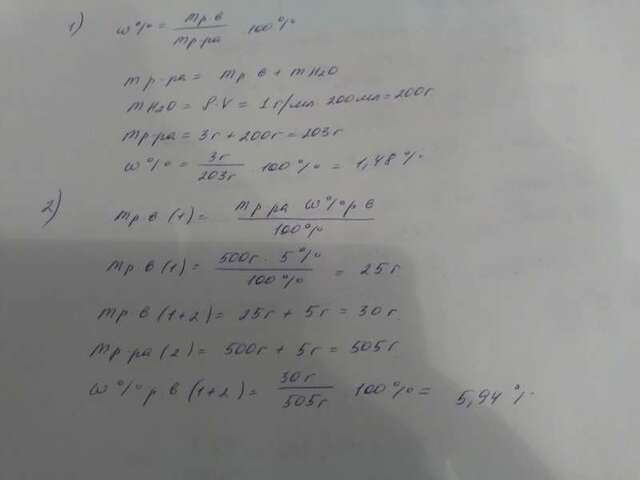 1) ω% = mр.в / mр-ра · 100%
mр-ра = mр.в + mH2O
mH2O = ρ·V = 1 г/мл · 200мл = 200г
mр-ра = 3г + 200г = 203г
ω% = 3г / 203г · 100% = 1,48%
2) mр.в (1) = mр.ра · ω%р.в / 100%
mр.в (1) = 500г · 5% / 100% = 25г
mр.в (1+2) = 25г + 5г = 30г.
mр.ра (2) = 500г + 5г = 505г.
ω% р.в (1+2) = 30г / 505г · 100% = 5,94%